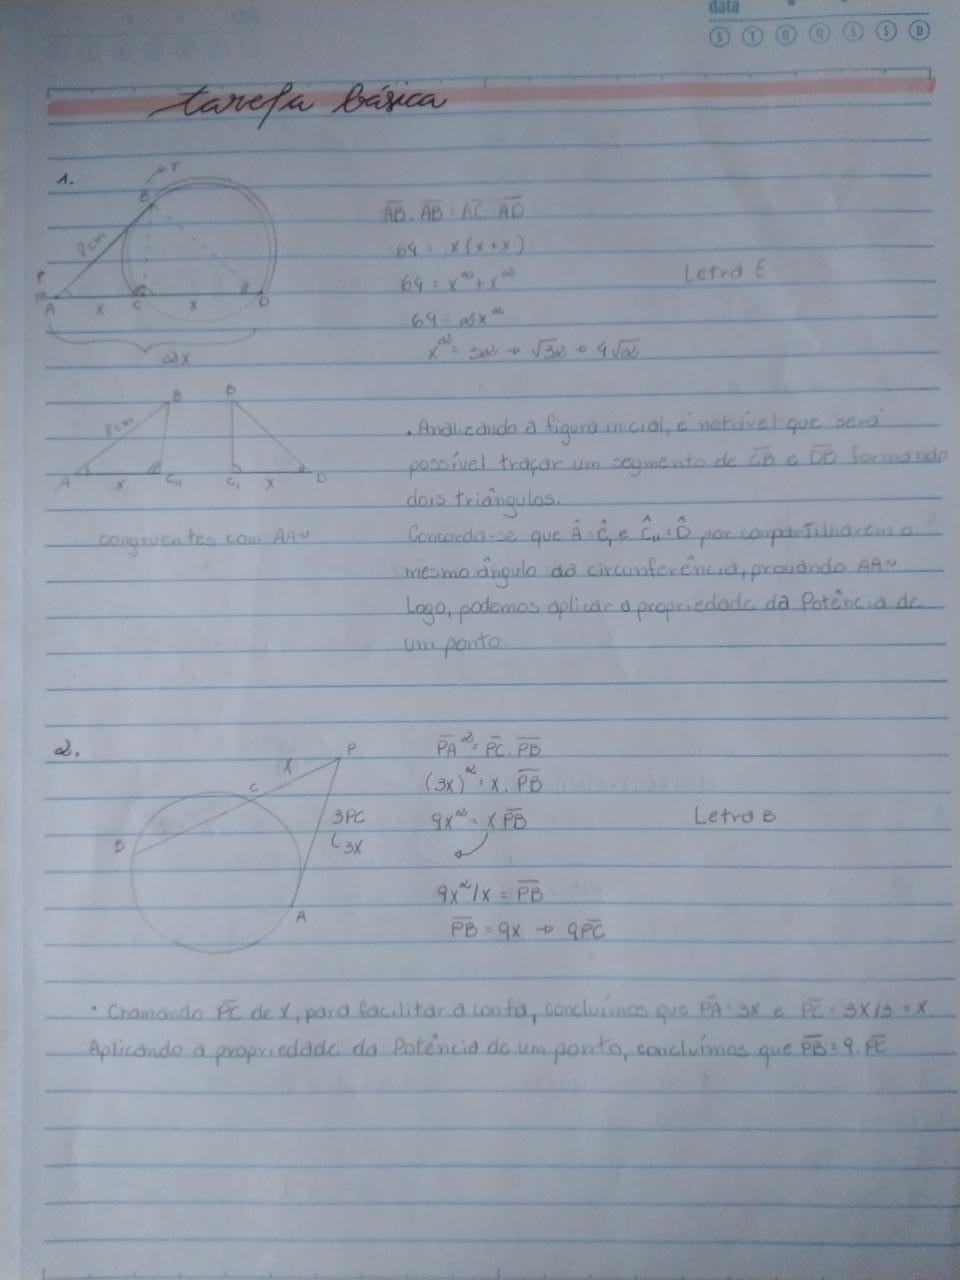 data
S T Q Q S S D
tarefa básica
1.
P T
B
8cm
P
A x C x D
2x
AB . AB = AC . AD
64 = x(x+x)
64 = x² + x²
64 = 2x²
x² = 32 → √32 → 4√2
Letra E
B B
8cm
A x C₁₁ C₁ x D
congruentes com AA~
. Analizando a figura inicial, é notável que será
possível traçar um segmento de CB e DB formando
dois triângulos.
Concorda-se que Â = Ĉ₁ e Ĉ₁₁ = D̂ por compartilharem o
mesmo ângulo da circunferência, provando AA~
Logo, podemos aplicar a propriedade da Potência de
um ponto.
2.
P
x
C
B
3PC
↳ 3x
A
PA² = PC . PB
(3x)² = x . PB
9x² = x PB
9x²/x = PB
PB = 9x → 9PC
Letra B
. Chamando PC de x, para facilitar a conta, concluímos que PA = 3x e PC = 3x/3 = x.
Aplicando a propriedade da Potência de um ponto, concluímos que PB = 9.PC